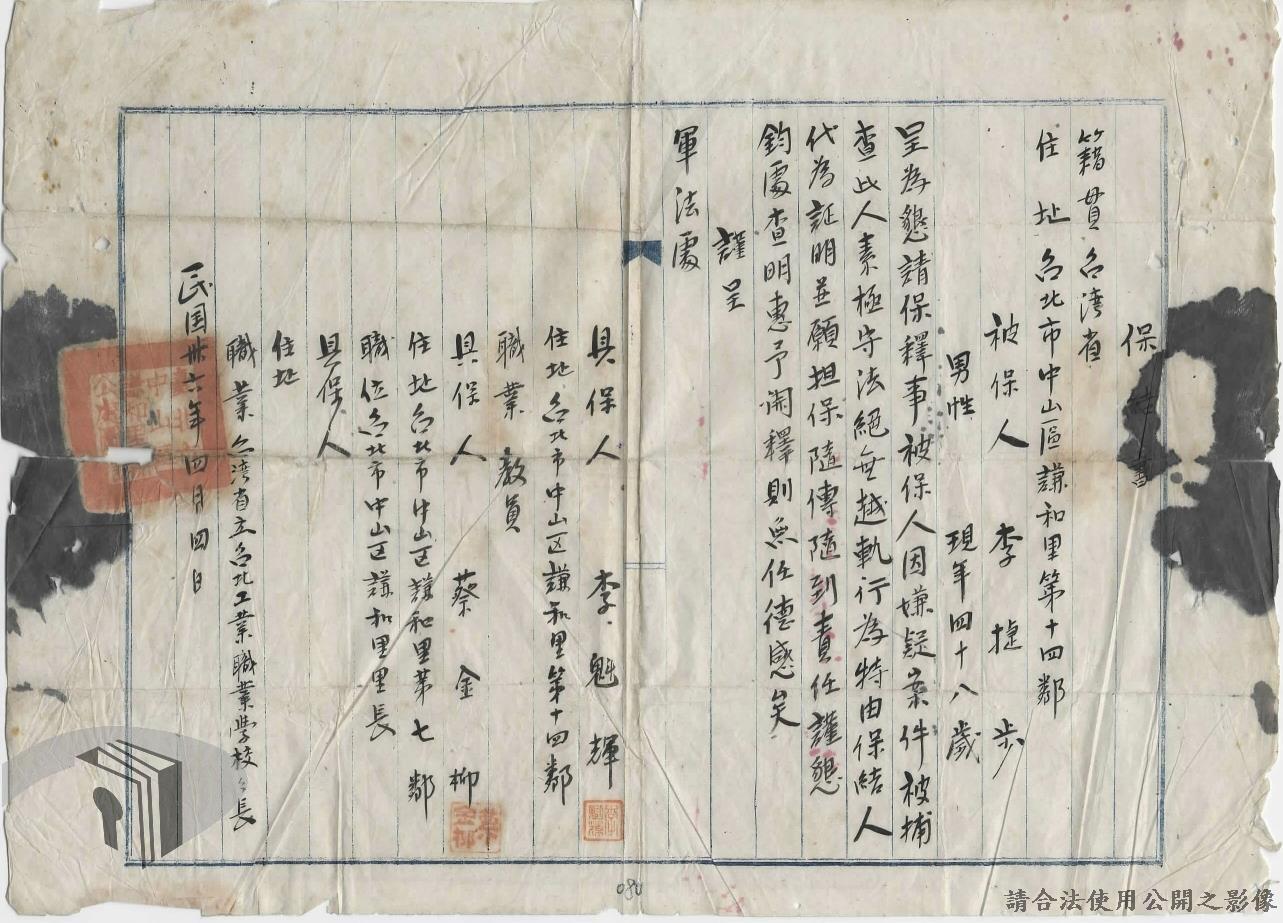 保結書
籍貫 台湾省
住址 台北市中山區謙和里第十四鄰
被保人 李捷步
男性 現年四十八歲
呈為懇請保釋事被保人因嫌疑案件被捕
查此人素極守法絕無越軌行為特由保結人
代為証明並願担保隨傳隨到責任謹懇
鈞處查明惠予開釋則無任德感矣
謹呈
軍法處
具保人 李魁輝
住址 台北市中山区謙和里第十四鄰
職業 教員
具保人 蔡金柳
住址 台北市中山区謙和里第七鄰
職位 台北市中山区謙和里里長
具保人
住址
職業 台湾省立台北工業職業學校々長
民国卅六年四月四日
080
請合法使用公開之影像